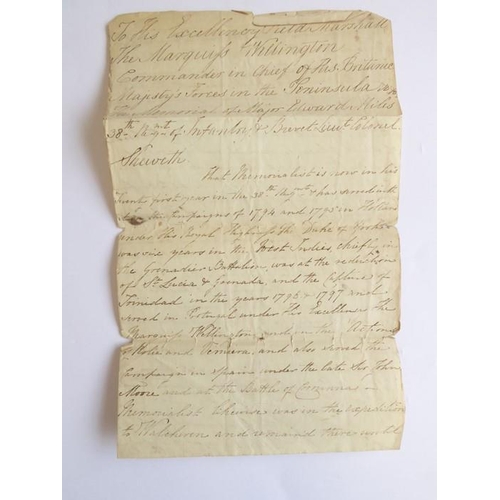 To His Excellency Field Marshall
The Marquiss Wellington
Commander in Chief of His Britanic
Majesty's Forces in the Peninsula
The Memorial of Major Edward Miles
38th Regt of Infantry & Brevet Lieut Colonel
Sheweth
That Memorialist is now in his
Twenty first year in the 38th Regt & has served with
the Campaigns of 1794 and 1795 in Holland
under His Royal Highness the Duke of York
was nine years in the West Indies, chiefly in
the Grenadier Battalion, was at the reduction
of St Lucia & Grenada, and the Capture of
Trinidad in the years 1796 & 1797 and
served in Portugal under His Excellency the
Marquiss Wellington and in the Actions
of Rolie and Vimiera, and also served the
Campaign in Spain under the late Sir John
Moore and at the Battle of Corunna
Memorialist likewise was in the expedition
to Walcheren and remained there until